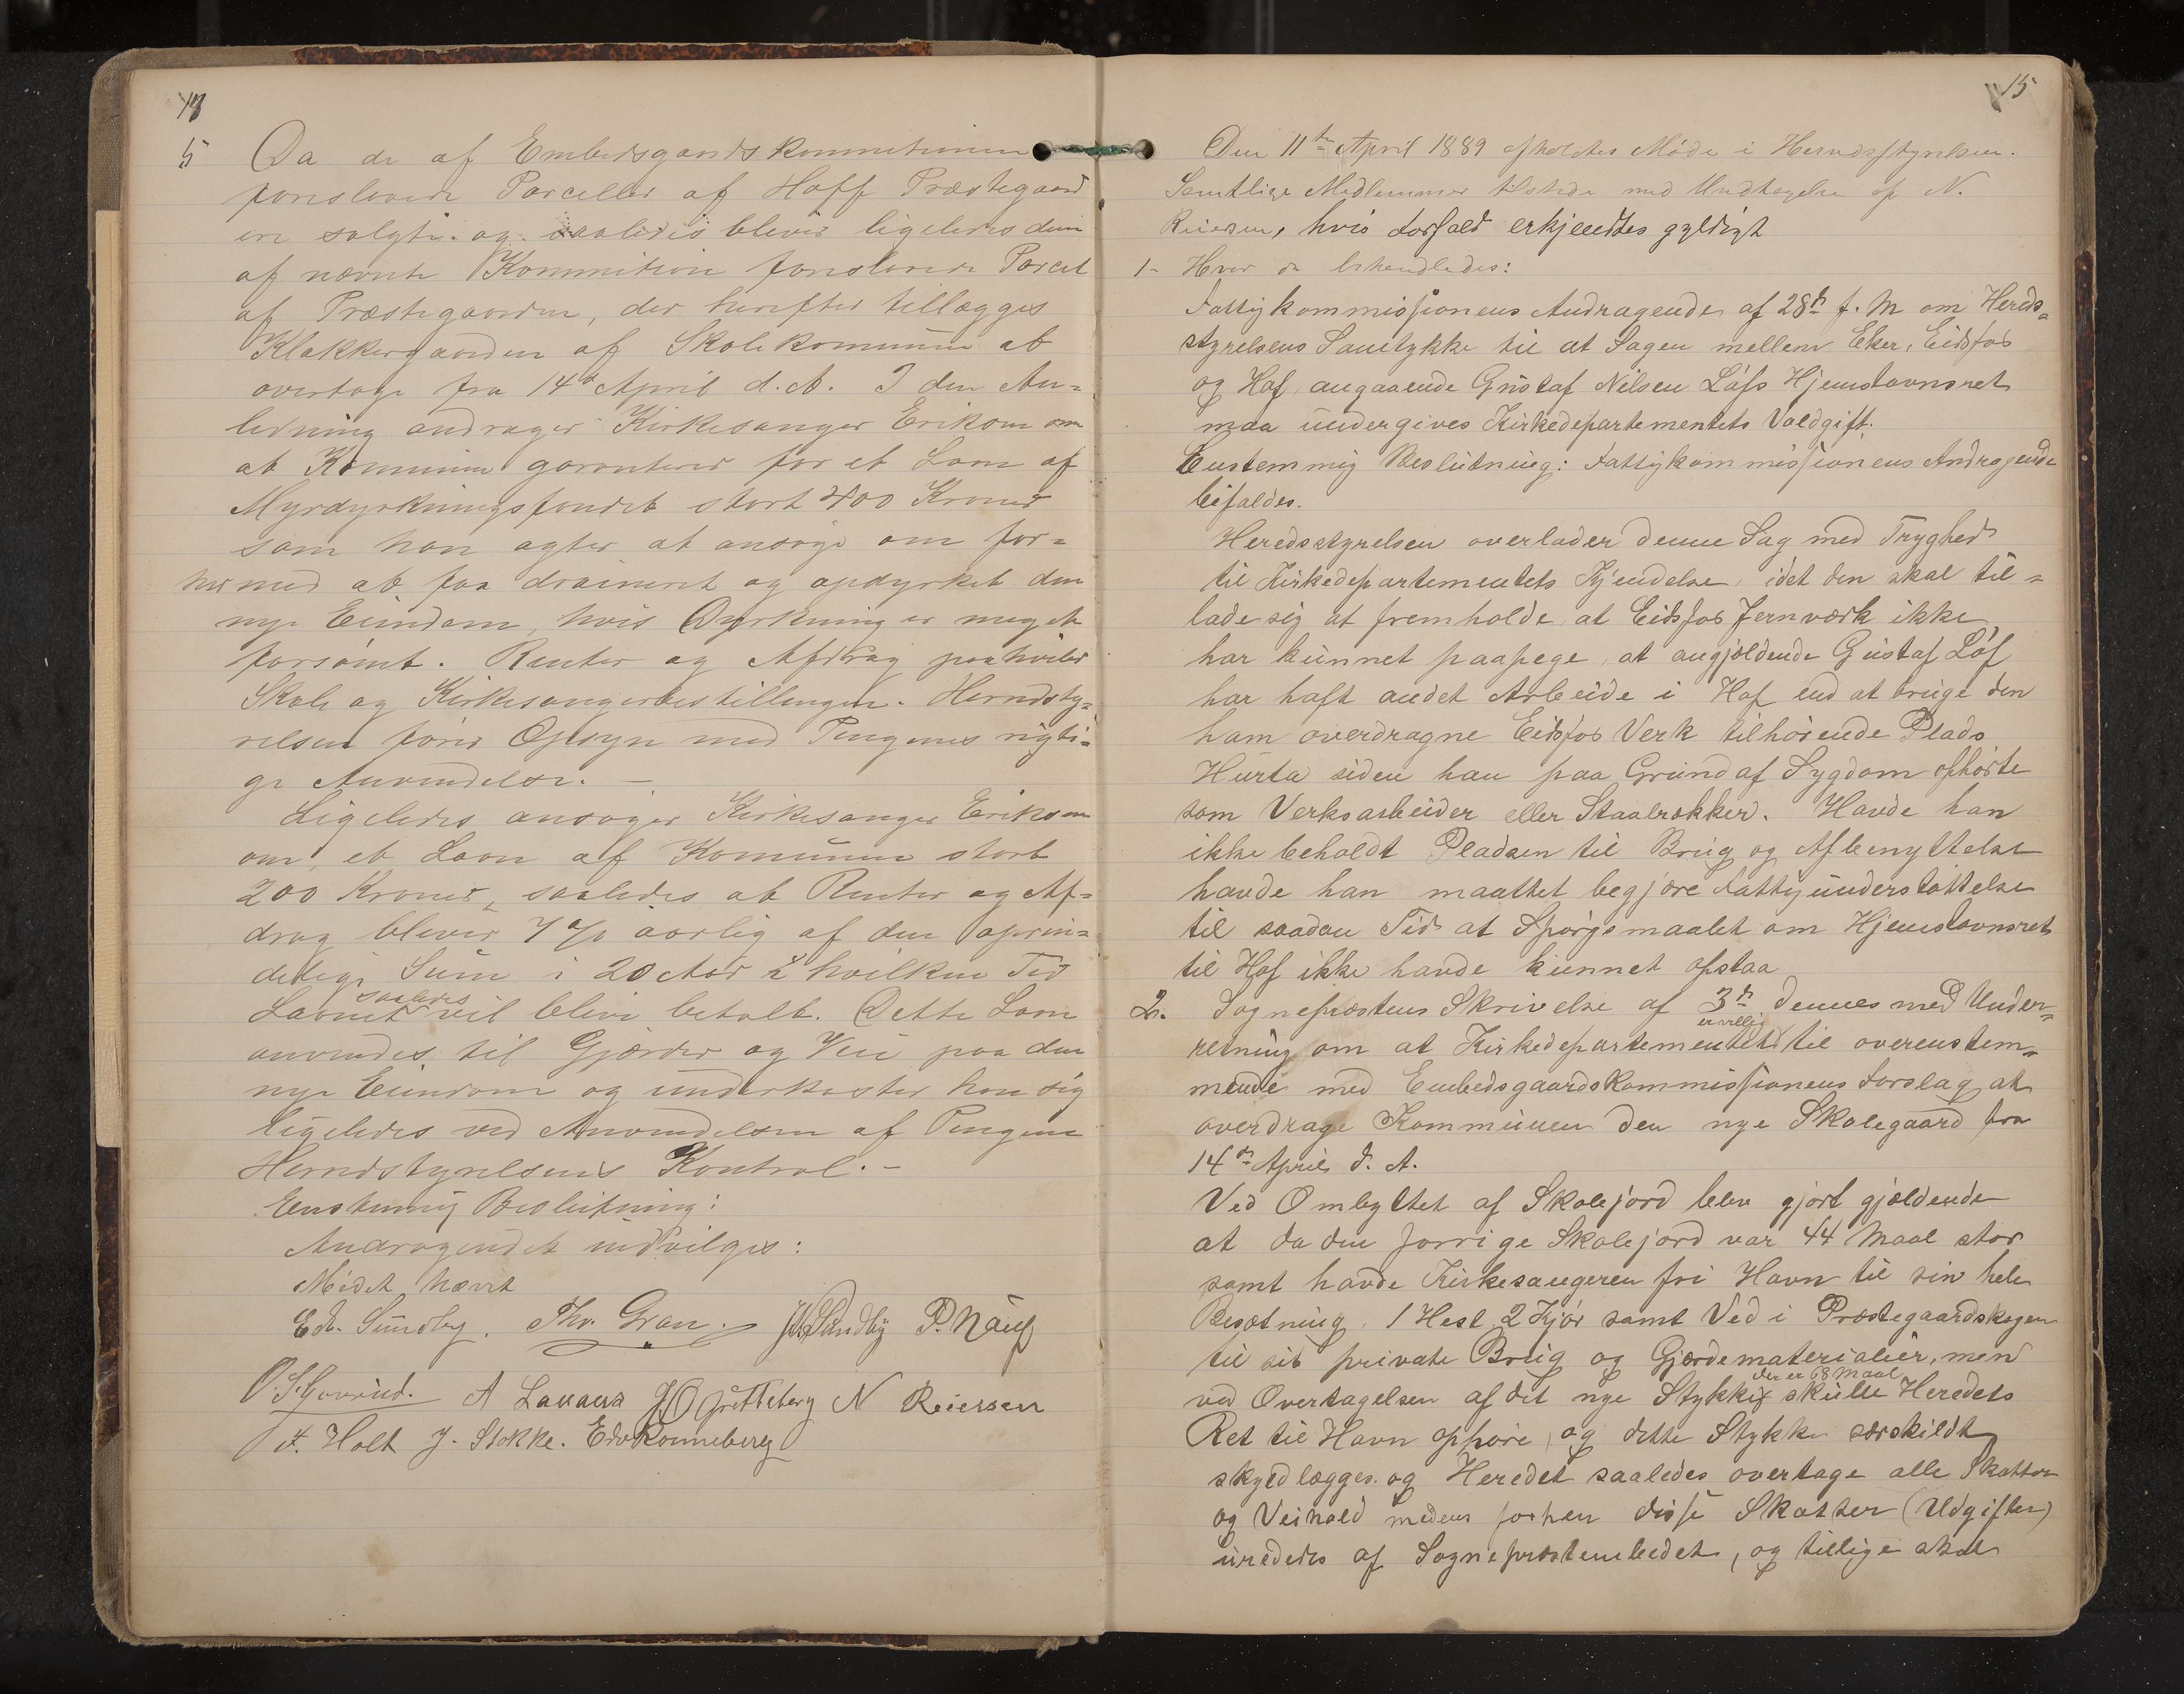 14
5 Da de af Embedsgaardskommitionen
foreslovede Parceller af Hoff Præstegaard
ere solgte og saaledes bliver ligeledes den
af nævnte Kommition foreslovede Parcel
af Præstegaarden, der herefter tillægges
Klokkergaarden af Skolekomunen at
overtage fra 14de April d. A. I den An=
ledning andrager Kirkesanger Erikson om
at Komunen garanterer for et Laan af
Myrdyrkningsfondet stort 400 Kroner
som han agter at ansøge om for=
hermed at faa draineret og opdyrket den
nye Eiendom, hvis Dyrkning er meget
forsømt. Renter og Afdrag paahviler
Skole og Kirkesangerbestillingen. Herredsty=
relsen fører Opsyn med Pengenes rigti=
ge Anvendelse. —
Ligeledes ansøger Kirkesanger Erikson
om et Laan af Komunen stort
200 Kroner, saaledes at Renter og Af=
drag bliver 7 % aarlig af den oprin=
delige Sum i 20 Aar i hvilken Tid
Laanet saaledes vil blive betalt. Dette Laan
anvendes til Gjærder og Vei paa den
nye Eiendom og underkaster han sig
ligeledes ved Anvendelsen af Pengene
Herredstyrelsens Kontrol. —
Enstemmig Beslutning:
Andragendet indvilges:
Mødet hævet
Edv. Sundby. Thv. Gran. P. Nauf
A Lanaus J O Grøtteberg N Reiersen
F. Holt J. Stokke. Edv Ronneberg
15
Den 11te April 1889 afholdtes Møde i Herredsstyrelsen.
Samtlige Medlemmer tilstede med Undtagelse af N.
Reiersen, hvis Forfald erkjendtes gyldigt
1- Hvor da behandledes:
Fattigkommissionens Andragende af 28de f. M om Hereds=
styrelsens Samtykke til at Sagen mellem Eker, Eidsfos
og Hof angaaende Gustaf Nilsen Løfs Hjemstavnsret
maa undergives Kirkedepartementets Voldgift.
Eenstemmig Beslutning: Fattigkommissionens Andragende
bifaldes.
Heredsstyrelsen overlader denne Sag med Tryghed
til Kirkedepartementets Kjendelse, idet den skal til=
lade sig at fremholde at Eidsfos Jernværk ikke
har kunnet paapege, at angjældende Gustaf Løf
har haft andet Arbeide i Hof end at bruge den
ham overdragne Eidsfos Verk tilhørende Plads
Hurta siden han paa Grund af Sygdom ophørte
som Verksarbeider eller Staalrækker. Havde han
ikke beholdt Pladsen til Brug og Afbenyttelse
havde han maattet begjære Fattigunderstøttelse
til saadan Tid at Spørgsmaalet om Hjemstavnsret
til Hof ikke havde kunnet opstaa
2. Sogneprestens Skrivelse af 3de dennes med Under=
retning om at Kirkedepartementet er villig til overenstem=
mende med Embedsgaardskommissionens Forslag at
overdrage Kommunen den nye Skolegaard fra
14de April d. A.
Ved Ombyttet af Skolejord blev gjort gjældende
at da den forrige Skolejord var 44 Maal stor
samt havde Kirkesangeren fri Havn til sin hele
Besætning, 1 Hest 2 Kjør samt Ved i Præstegaardskogen
til sit private Brug og Gjærdematerialier, men
ved Overtagelsen af det nye Stykke der er 68 Maal skulle Heredets
Ret til Havn ophøre, og dette Stykke særskildt
skyldlægges og Heredet saaledes overtage alle Skatter
og Veihold medens forhen disse Skatter (Udgifter)
urededes af Sogneprestembedet, og tillige skal